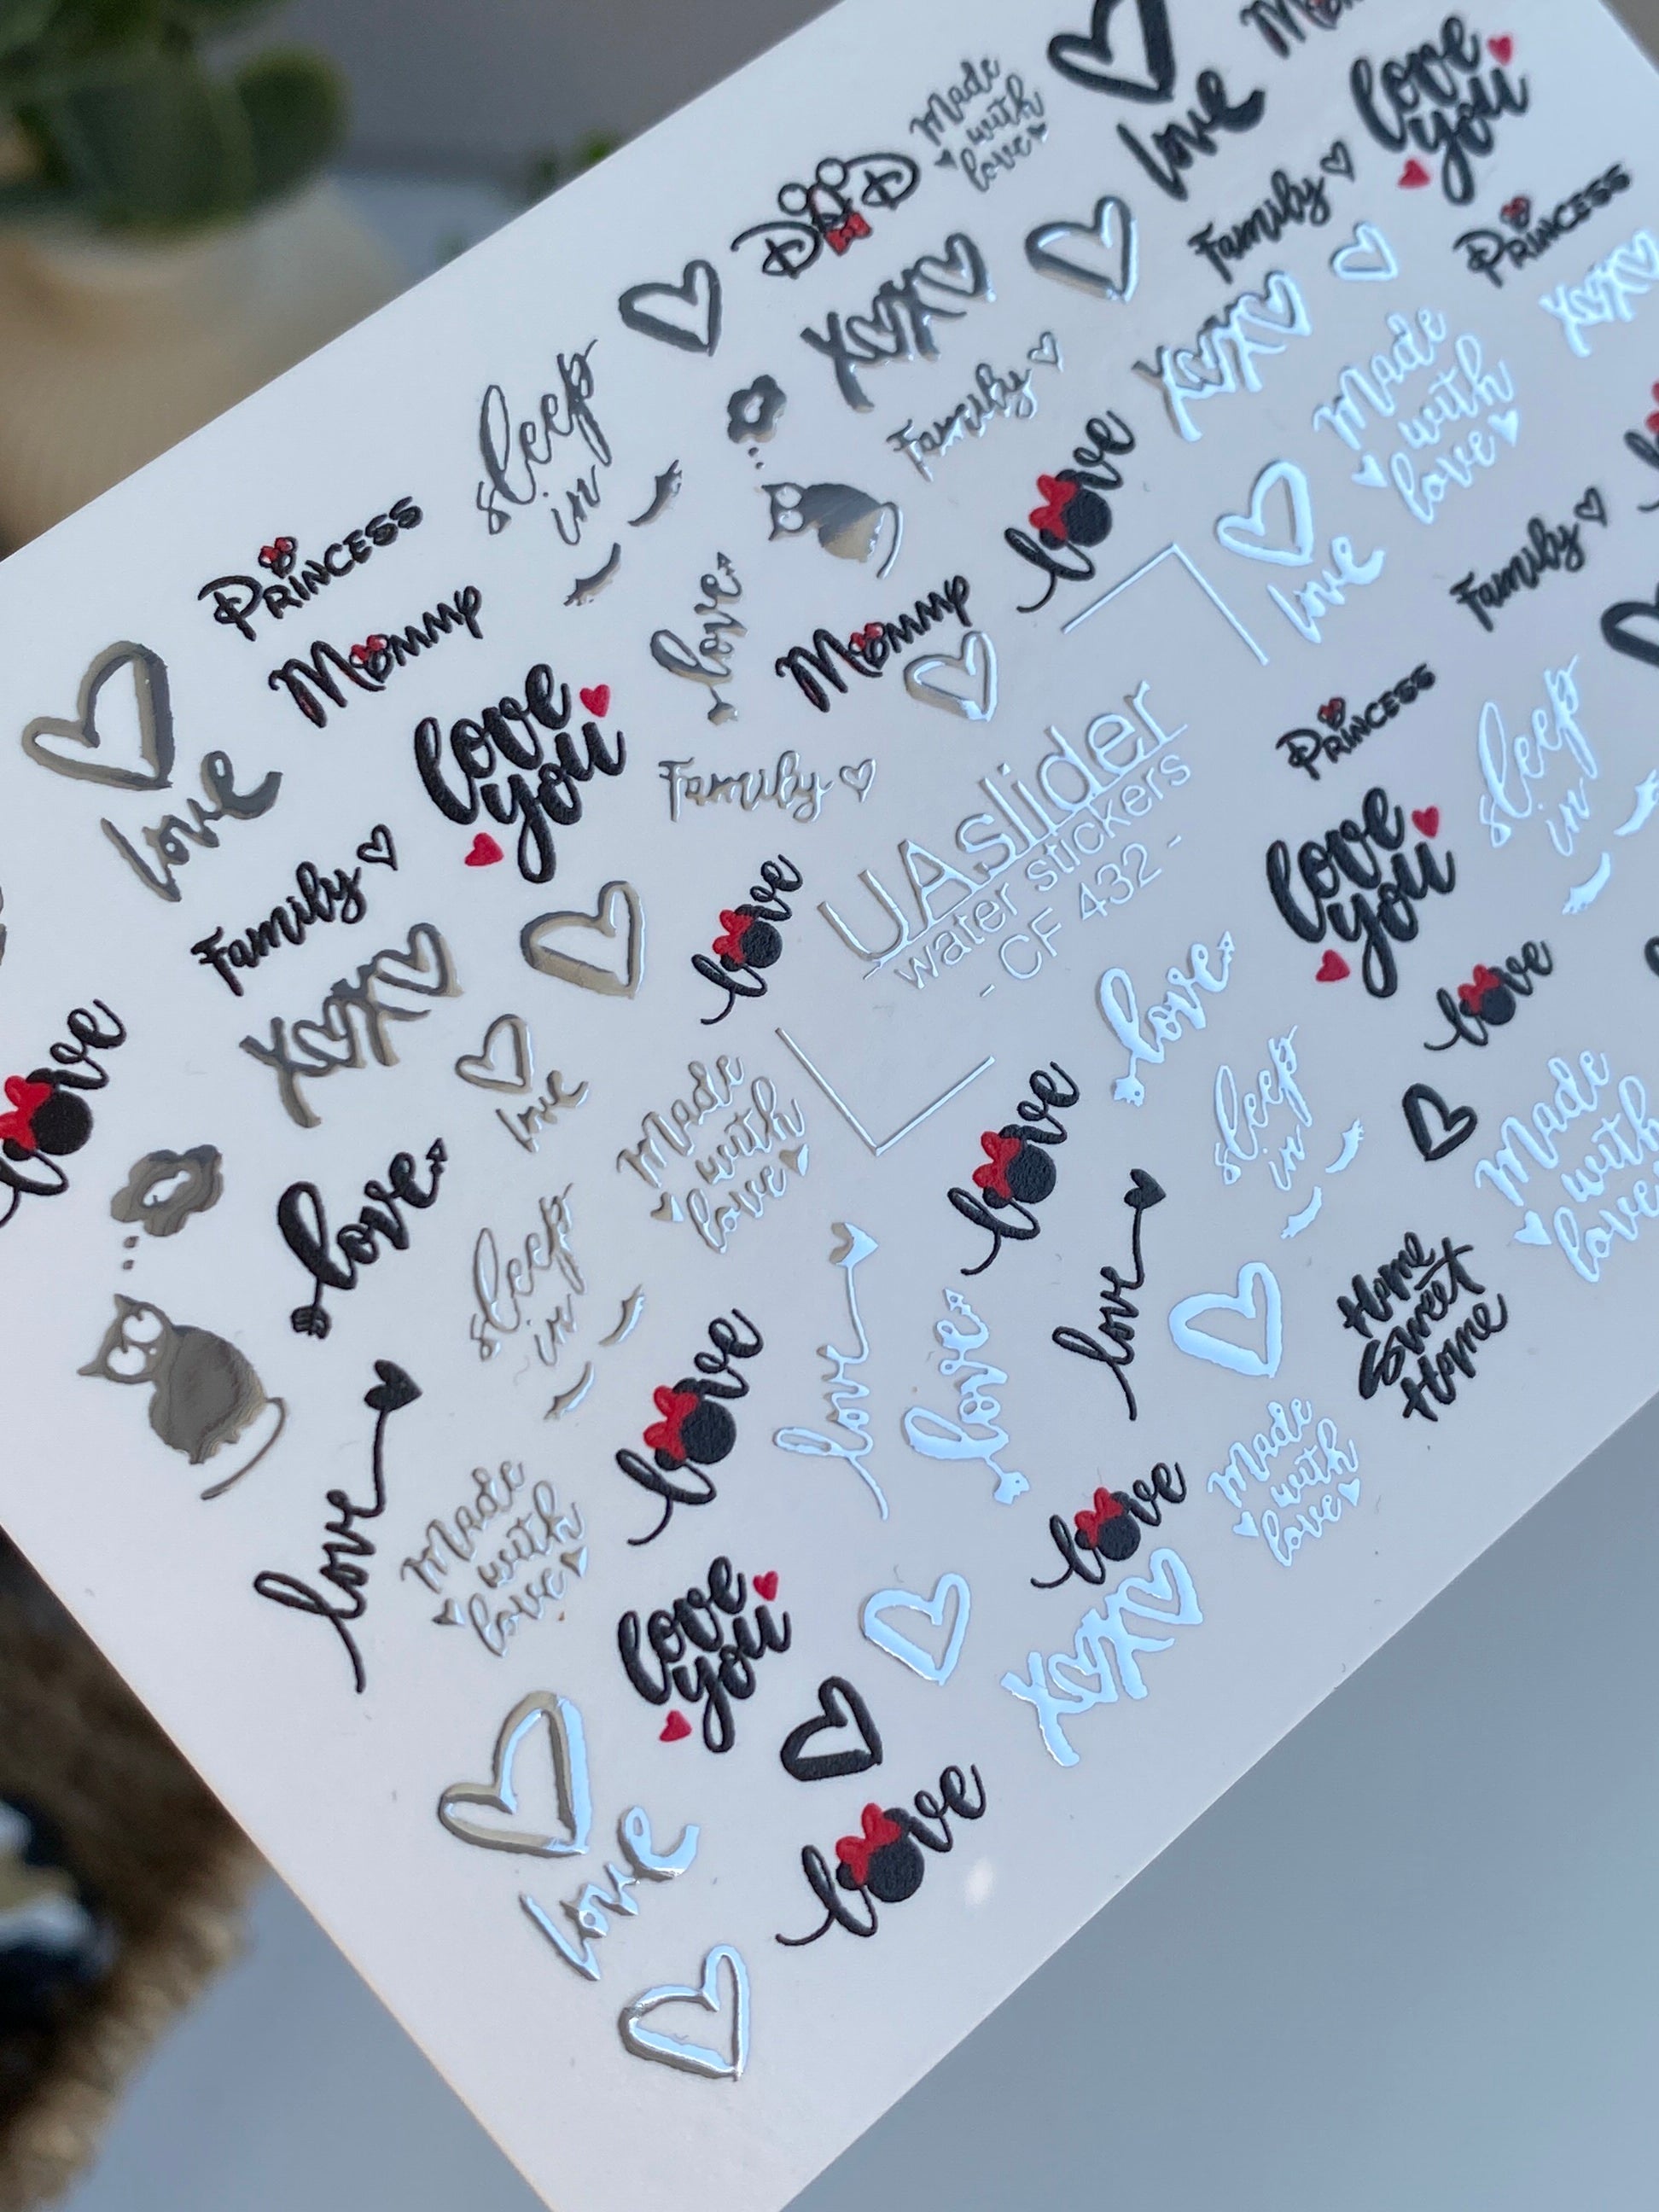 Made
with
love
Love
love
you
DAD
Family
PRINCESS
XOXO
XOXO
XOXO
sleep
in
Family
Made
with
love
PRINCESS
Mommy
love
love
love
Family
Mommy
love
you
love
Family
UAslider
water stickers
- CF 432 -
PRINCESS
love
you
sleep
in
love
Family
XOXO
love
love
love
love
love
love
Made
with
love
love
sleep
in
love
Made
with
love
love
sleep
in
love
love
love
Home
Sweet
Home
love
Made
with
love
love
Made
with
love
love
you
XOXO
love
love